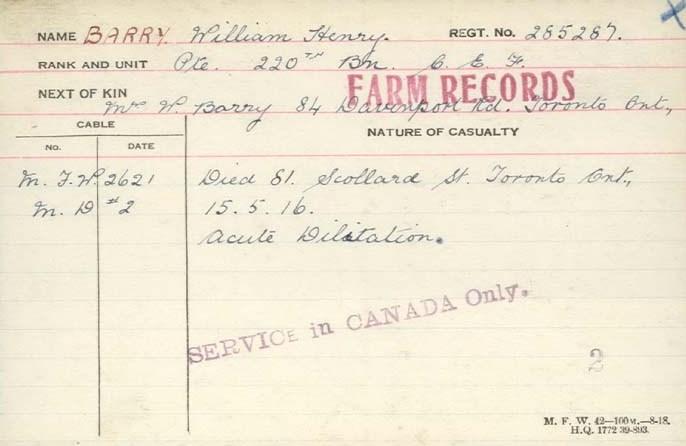 NAME BARRY. William Henry. REGT. No. 285287.
RANK AND UNIT Pte. 220TH Bn. C. E. F.
FARM RECORDS
NEXT OF KIN Mrs W. Barry 84 Davenport Rd. Toronto Ont.,
CABLE
NATURE OF CASUALTY
No. DATE
M. F. W. 2621 Died 81. Scollard St. Toronto Ont.,
M. D #2 15.5.16.
Acute Dilitation.
SERVICE in CANADA Only.
2
M. F. W. 42—100M.—8-18.
H.Q. 1772 39-893.